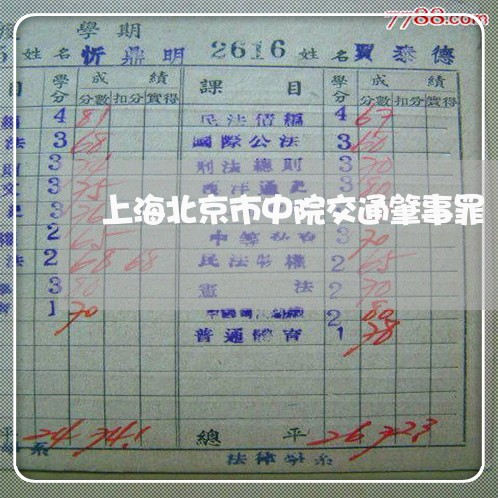 7788.com
學期
姓名 忻鼎明 2616 姓名 賈泰德
目 學分 成績 課目 學分 成績
分數 扣分 實得 分數 扣分 實得
4 81 民法債編 4 67
法 3 68 國際公法 3 60
3 刑法總則 3 70
3 75 西洋通史 3 80
上海北京市中院交通肇事罪
2 65 3 70
法 2 68 68 民法物權 2 65
3 80 憲法 2 70
1 70 2 80
普通體育 1 78
平 24 74.1 總平 26 72.3
系 法律學系